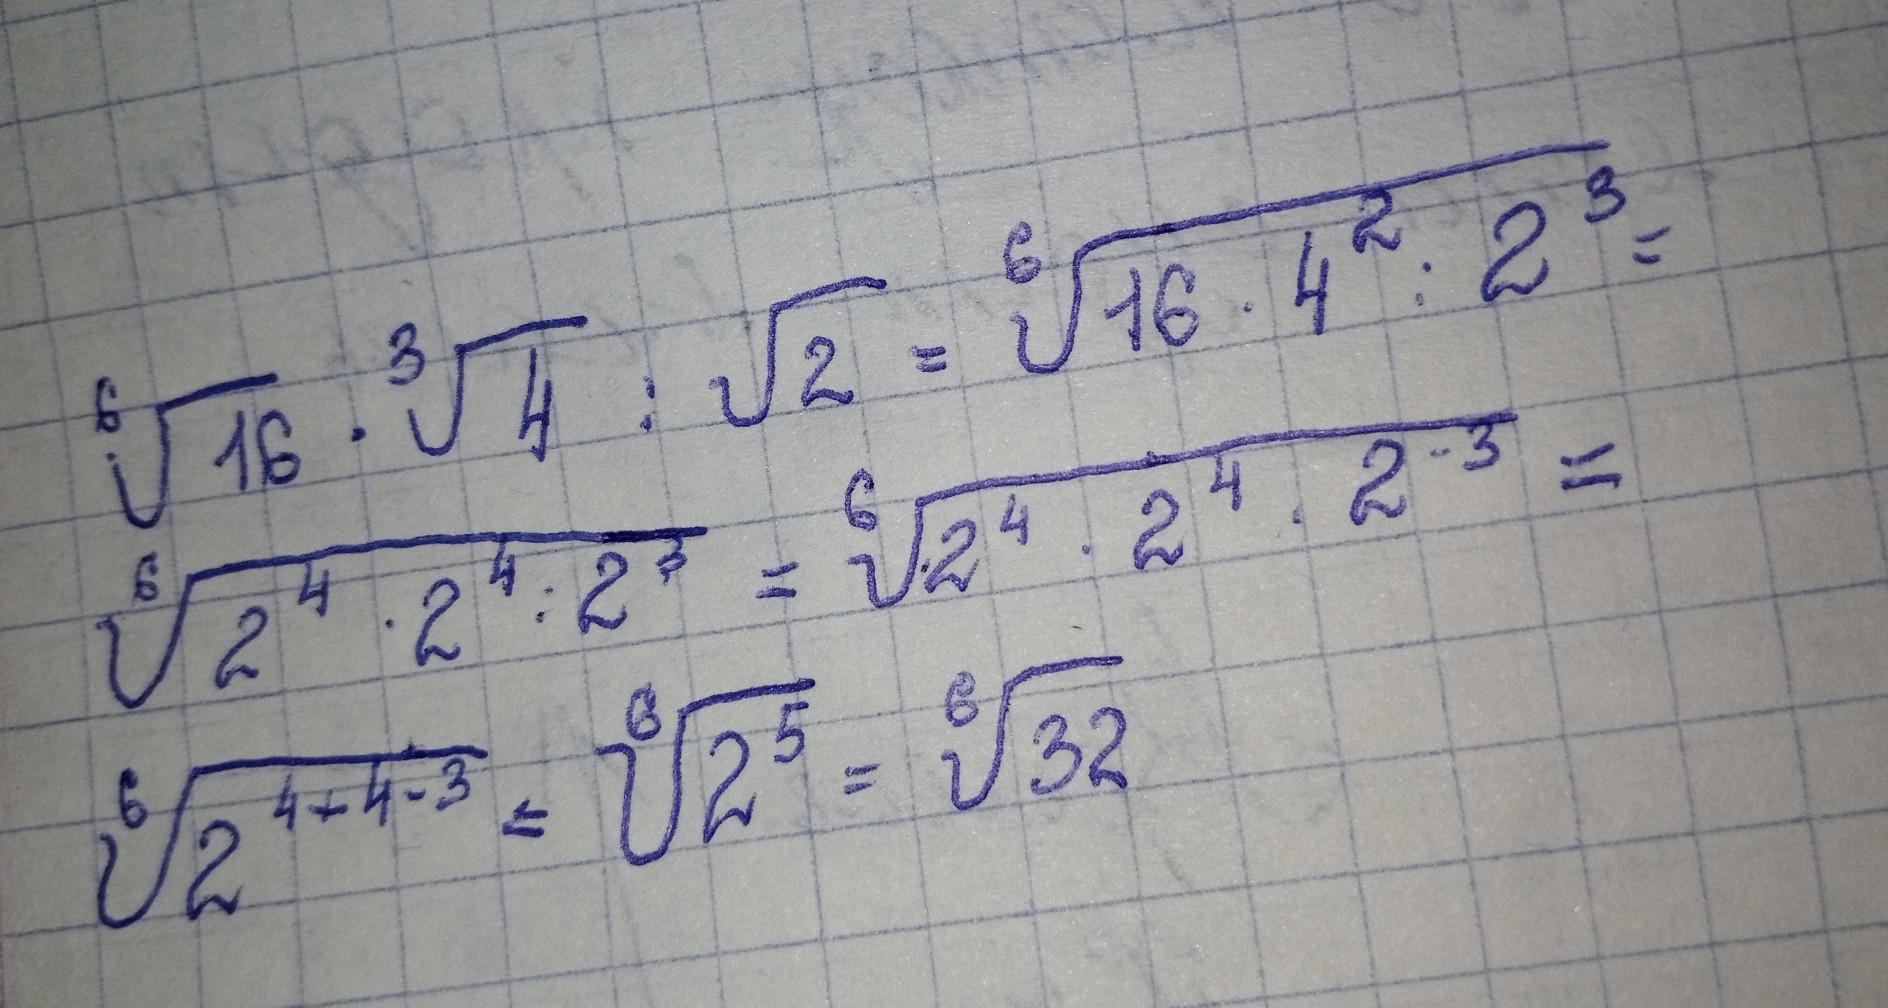 ⁶√16 · ³√4 : √2 = ⁶√(16 · 4² : 2³) =
⁶√(2⁴ · 2⁴ : 2³) = ⁶√(2⁴ · 2⁴ · 2⁻³) =
⁶√(2⁴⁺⁴⁻³) = ⁶√(2⁵) = ⁶√32